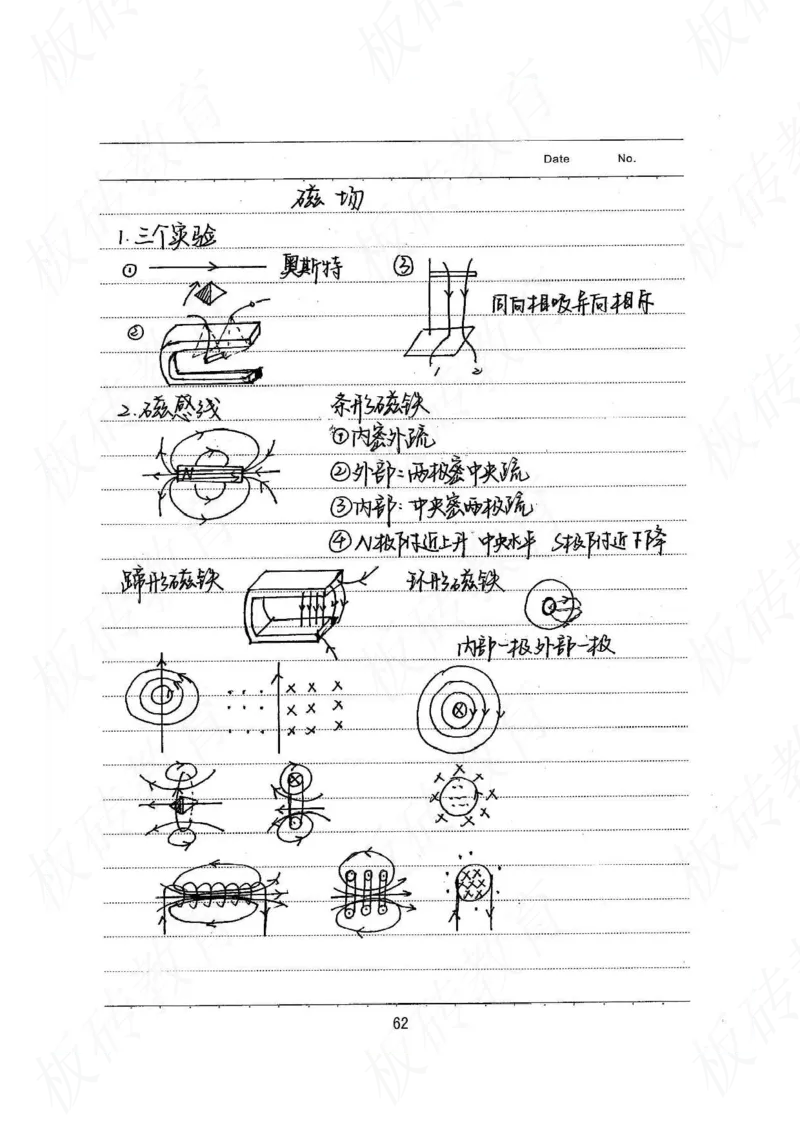 Date No.
磁场
1.三个实验
① 奥斯特 ③
同向相吸异向相斥
②
1 2
2.磁感线 条形磁铁
①内密外疏
N S
②外部:两极密中央疏
③内部:中央密两极疏
④N极附近上升 中央水平 S极附近下降
蹄形磁铁 环形磁铁
内部一极外部一极
62
板砖教育